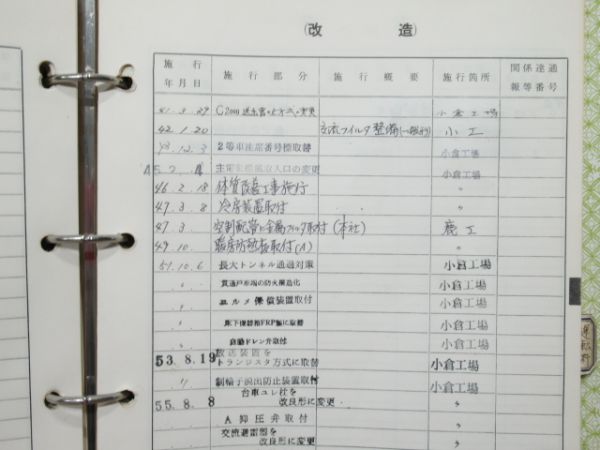 (改 造)
施行年月日 施行部分 施行概要 施行箇所 関係達通報等番号
41.3.29 C2000 変更 小倉工場
42.1.20 交流フイルタ整備 小工
43.12.3 2等車座席番号標取替 小倉工場
45.2. 入口の変更 小倉工場
46.2.18 体質改善工事施行 〃
47.3.8 冷房装置取付 〃
47.3 空制配管に金属フィルタ取付(本社) 鹿工
49.10. 取付(A) 〃
51.10.6 長大トンネル通過対策 小倉工場
〃 貫通戸車端の防火構造化 小倉工場
〃 ユルメ 装置取付 小倉工場
〃 床下 FRP に取替 小倉工場
〃 自動ドレン弁取付 小倉工場
53.8.19 放送装置を
トランジスタ方式に取替 小倉工場
〃 制輪子 防止装置取付 小倉工場
55.8.8 台車ユレ止を
改良形に変更 〃
A抑圧弁取付 〃
交流避雷器を
改良形に変更 〃